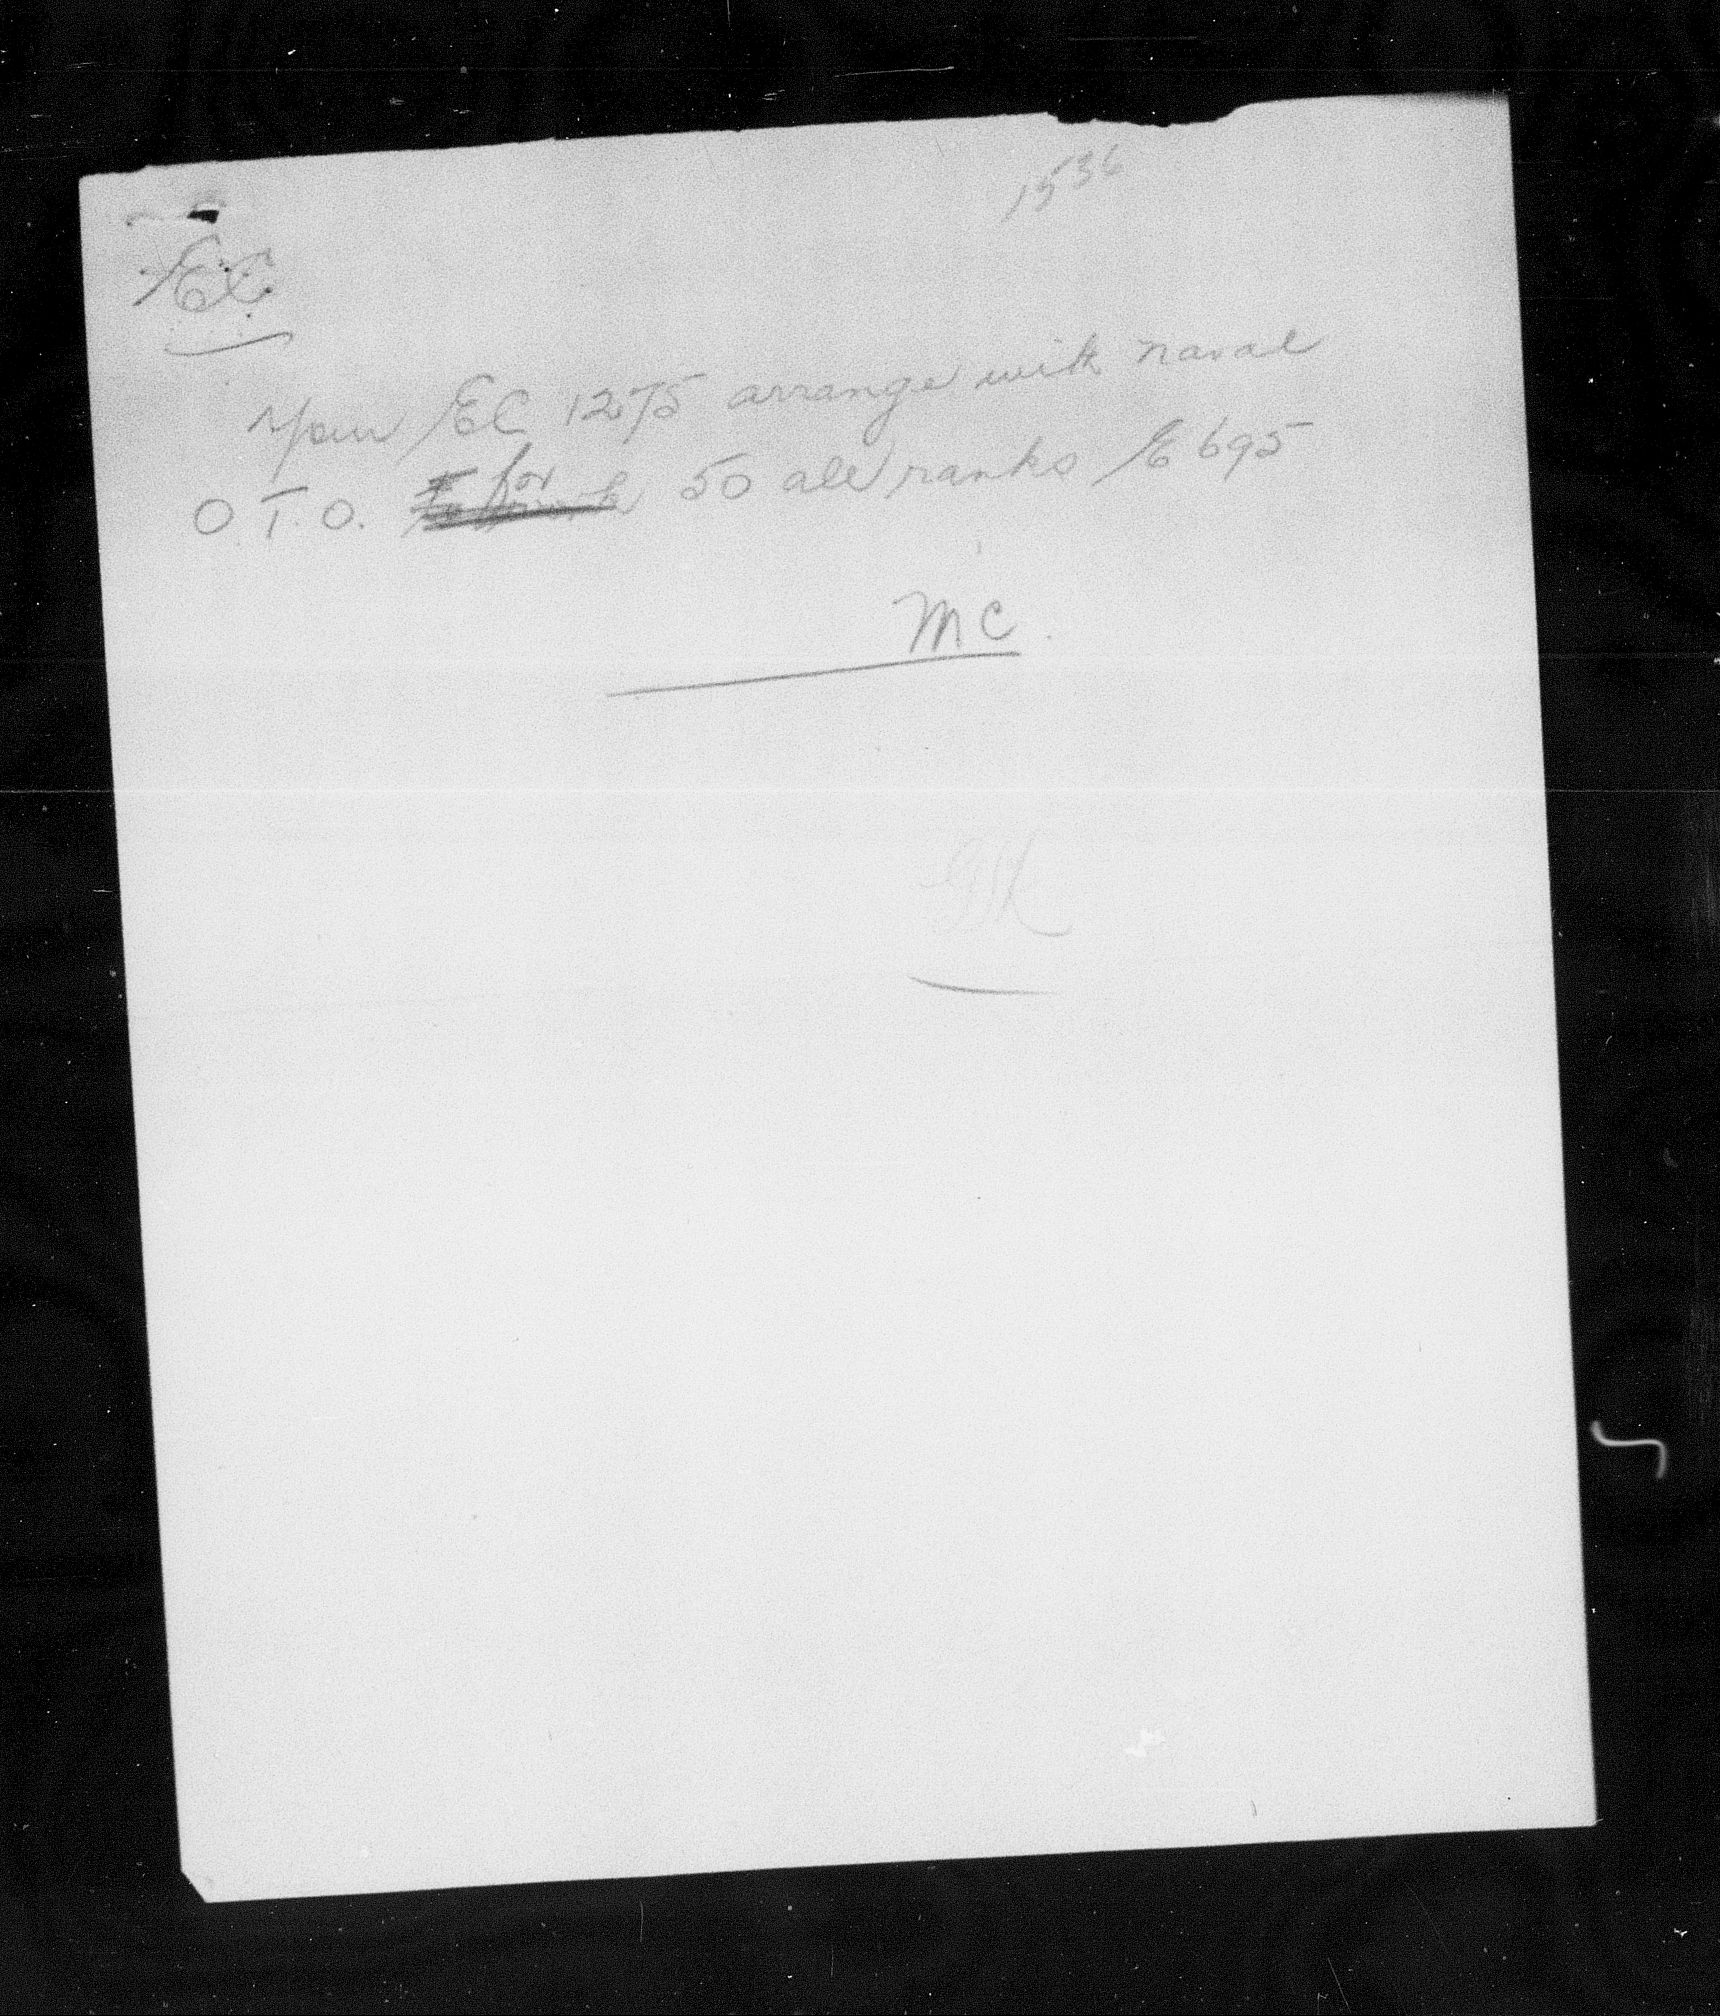 1536
EC
Your EC 1275 arrange with naval
O.T.O. for 50 all ranks E 695
MC.